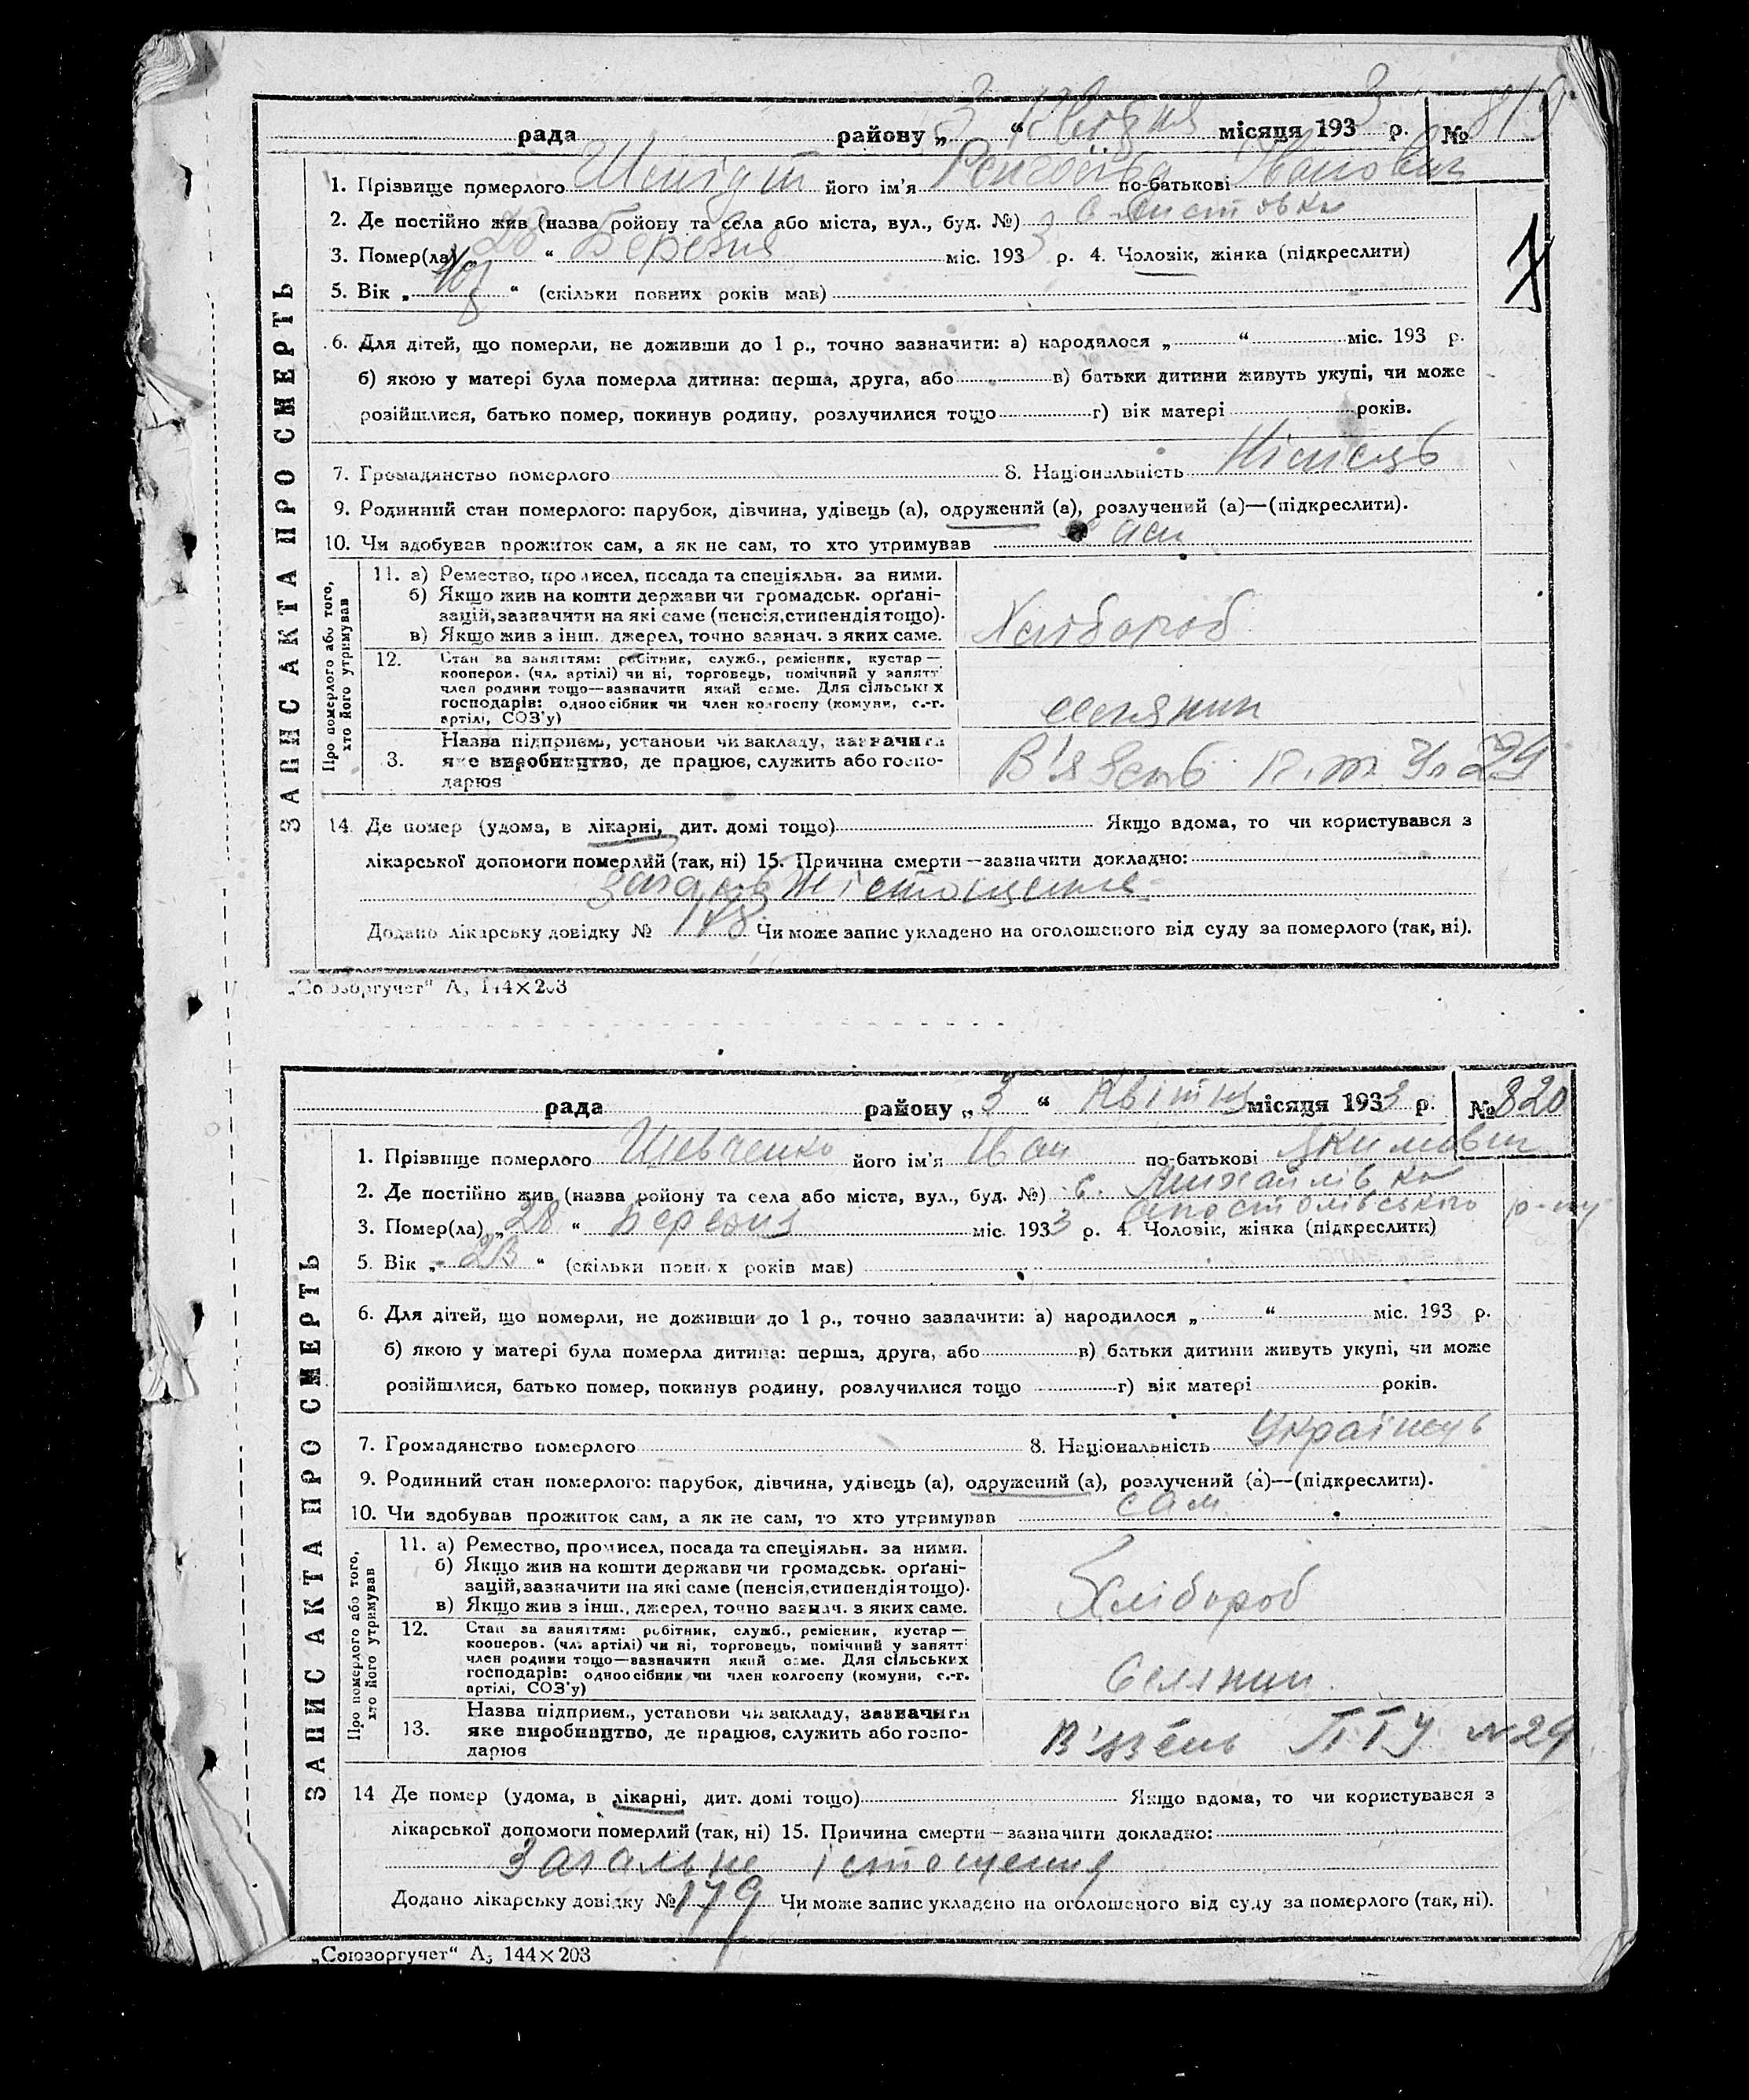 рада району „3 “ Квітня місяця 1933 р. № 819
1. Прізвище померлого Шмідт його ім'я по-батькові Іванович
2. Де постійно жив (назва району та села або міста, вул., буд. №) с.
3. Помер(ла) „28 “ Березня міс. 1933 р. 4. Чоловік, жінка (підкреслити)
5. Вік „ “ (скільки повних років мав)
6. Для дітей, що померли, не доживши до 1 р., точно зазначити: а) народилося „ “ міс. 193 р.
б) якою у матері була померла дитина: перша, друга, або в) батьки дитини живуть укупі, чи може
розійшлися, батько помер, покинув родину, розлучилися тощо г) вік матері років.
7. Громадянство померлого 8. Національність Німець
9. Родинний стан померлого: парубок, дівчина, удівець (а), одружений (а), розлучений (а)—(підкреслити).
10. Чи здобував прожиток сам, а як не сам, то хто утримував сам
ЗАПИС АКТА ПРО СМЕРТЬ
Про померлого або того, хто його утримував
11. а) Ремество, промисел, посада та спеціяльн. за ними.
б) Якщо жив на кошти держави чи громадськ. органі-
зацій, зазначити на які саме (пенсія, стипендія тощо).
в) Якщо жив з інш. джерел, точно зазнач. з яких саме.
Хлібороб
12. Стан за заняттям: робітник, служб., ремісник, кустар—
кооперов. (чл. артілі) чи ні, торговець, помічний у занятті
член родини тощо—зазначити який саме. Для сільських
господарів: одноосібник чи член колгоспу (комуни, с.-г.
артілі, СОЗ'у)
селянин
3. Назва підприєм., установи чи закладу, зазначити
яке виробництво, де працює, служить або госпо-
дарює
В'язень п.т.у. 29
14. Де помер (удома, в лікарні, дит. домі тощо) Якщо вдома, то чи користувався з
лікарської допомоги померлий (так, ні) 15. Причина смерти—зазначити докладно:
Загальне істощение
Додано лікарську довідку № 178 Чи може запис укладено на оголошеного від суду за померлого (так, ні).
„Союзоргучет“ А5 144×203
рада району „3 “ Квітня місяця 1933 р. № 820
1. Прізвище померлого Шевченко його ім'я Іван по-батькові Якимович
2. Де постійно жив (назва району та села або міста, вул., буд. №) с. Михайлівка
Апостолівського р-ну
3. Помер(ла) „28 “ Березня міс. 1933 р. 4. Чоловік, жінка (підкреслити)
5. Вік „23 “ (скільки повних років мав)
6. Для дітей, що померли, не доживши до 1 р., точно зазначити: а) народилося „ “ міс. 193 р.
б) якою у матері була померла дитина: перша, друга, або в) батьки дитини живуть укупі, чи може
розійшлися, батько помер, покинув родину, розлучилися тощо г) вік матері років.
7. Громадянство померлого 8. Національність Українець
9. Родинний стан померлого: парубок, дівчина, удівець (а), одружений (а), розлучений (а)—(підкреслити).
10. Чи здобував прожиток сам, а як не сам, то хто утримував сам
ЗАПИС АКТА ПРО СМЕРТЬ
Про померлого або того, хто його утримував
11. а) Ремество, промисел, посада та спеціяльн. за ними.
б) Якщо жив на кошти держави чи громадськ. орґані-
зацій, зазначити на які саме (пенсія, стипендія тощо).
в) Якщо жив з інш. джерел, точно зазнач. з яких саме.
Хлібороб
12. Стан за заняттям: робітник, служб., ремісник, кустар—
кооперов. (чл. артілі) чи ні, торговець, помічний у занятті
член родини тощо—зазначити який саме. Для сільських
господарів: одноосібник чи член колгоспу (комуни, с.-г.
артілі, СОЗ'у)
Селянин
13. Назва підприєм., установи чи закладу, зазначити
яке виробництво, де працює, служить або госпо-
дарює
В'язень ПТУ №29
14 Де помер (удома, в лікарні, дит. домі тощо) Якщо вдома, то чи користувався з
лікарської допомоги померлий (так, ні) 15. Причина смерти—зазначити докладно:
Загальне істощения
Додано лікарську довідку № 179 Чи може запис укладено на оголошеного від суду за померлого (так, ні).
„Союзоргучет“ А5 144×203